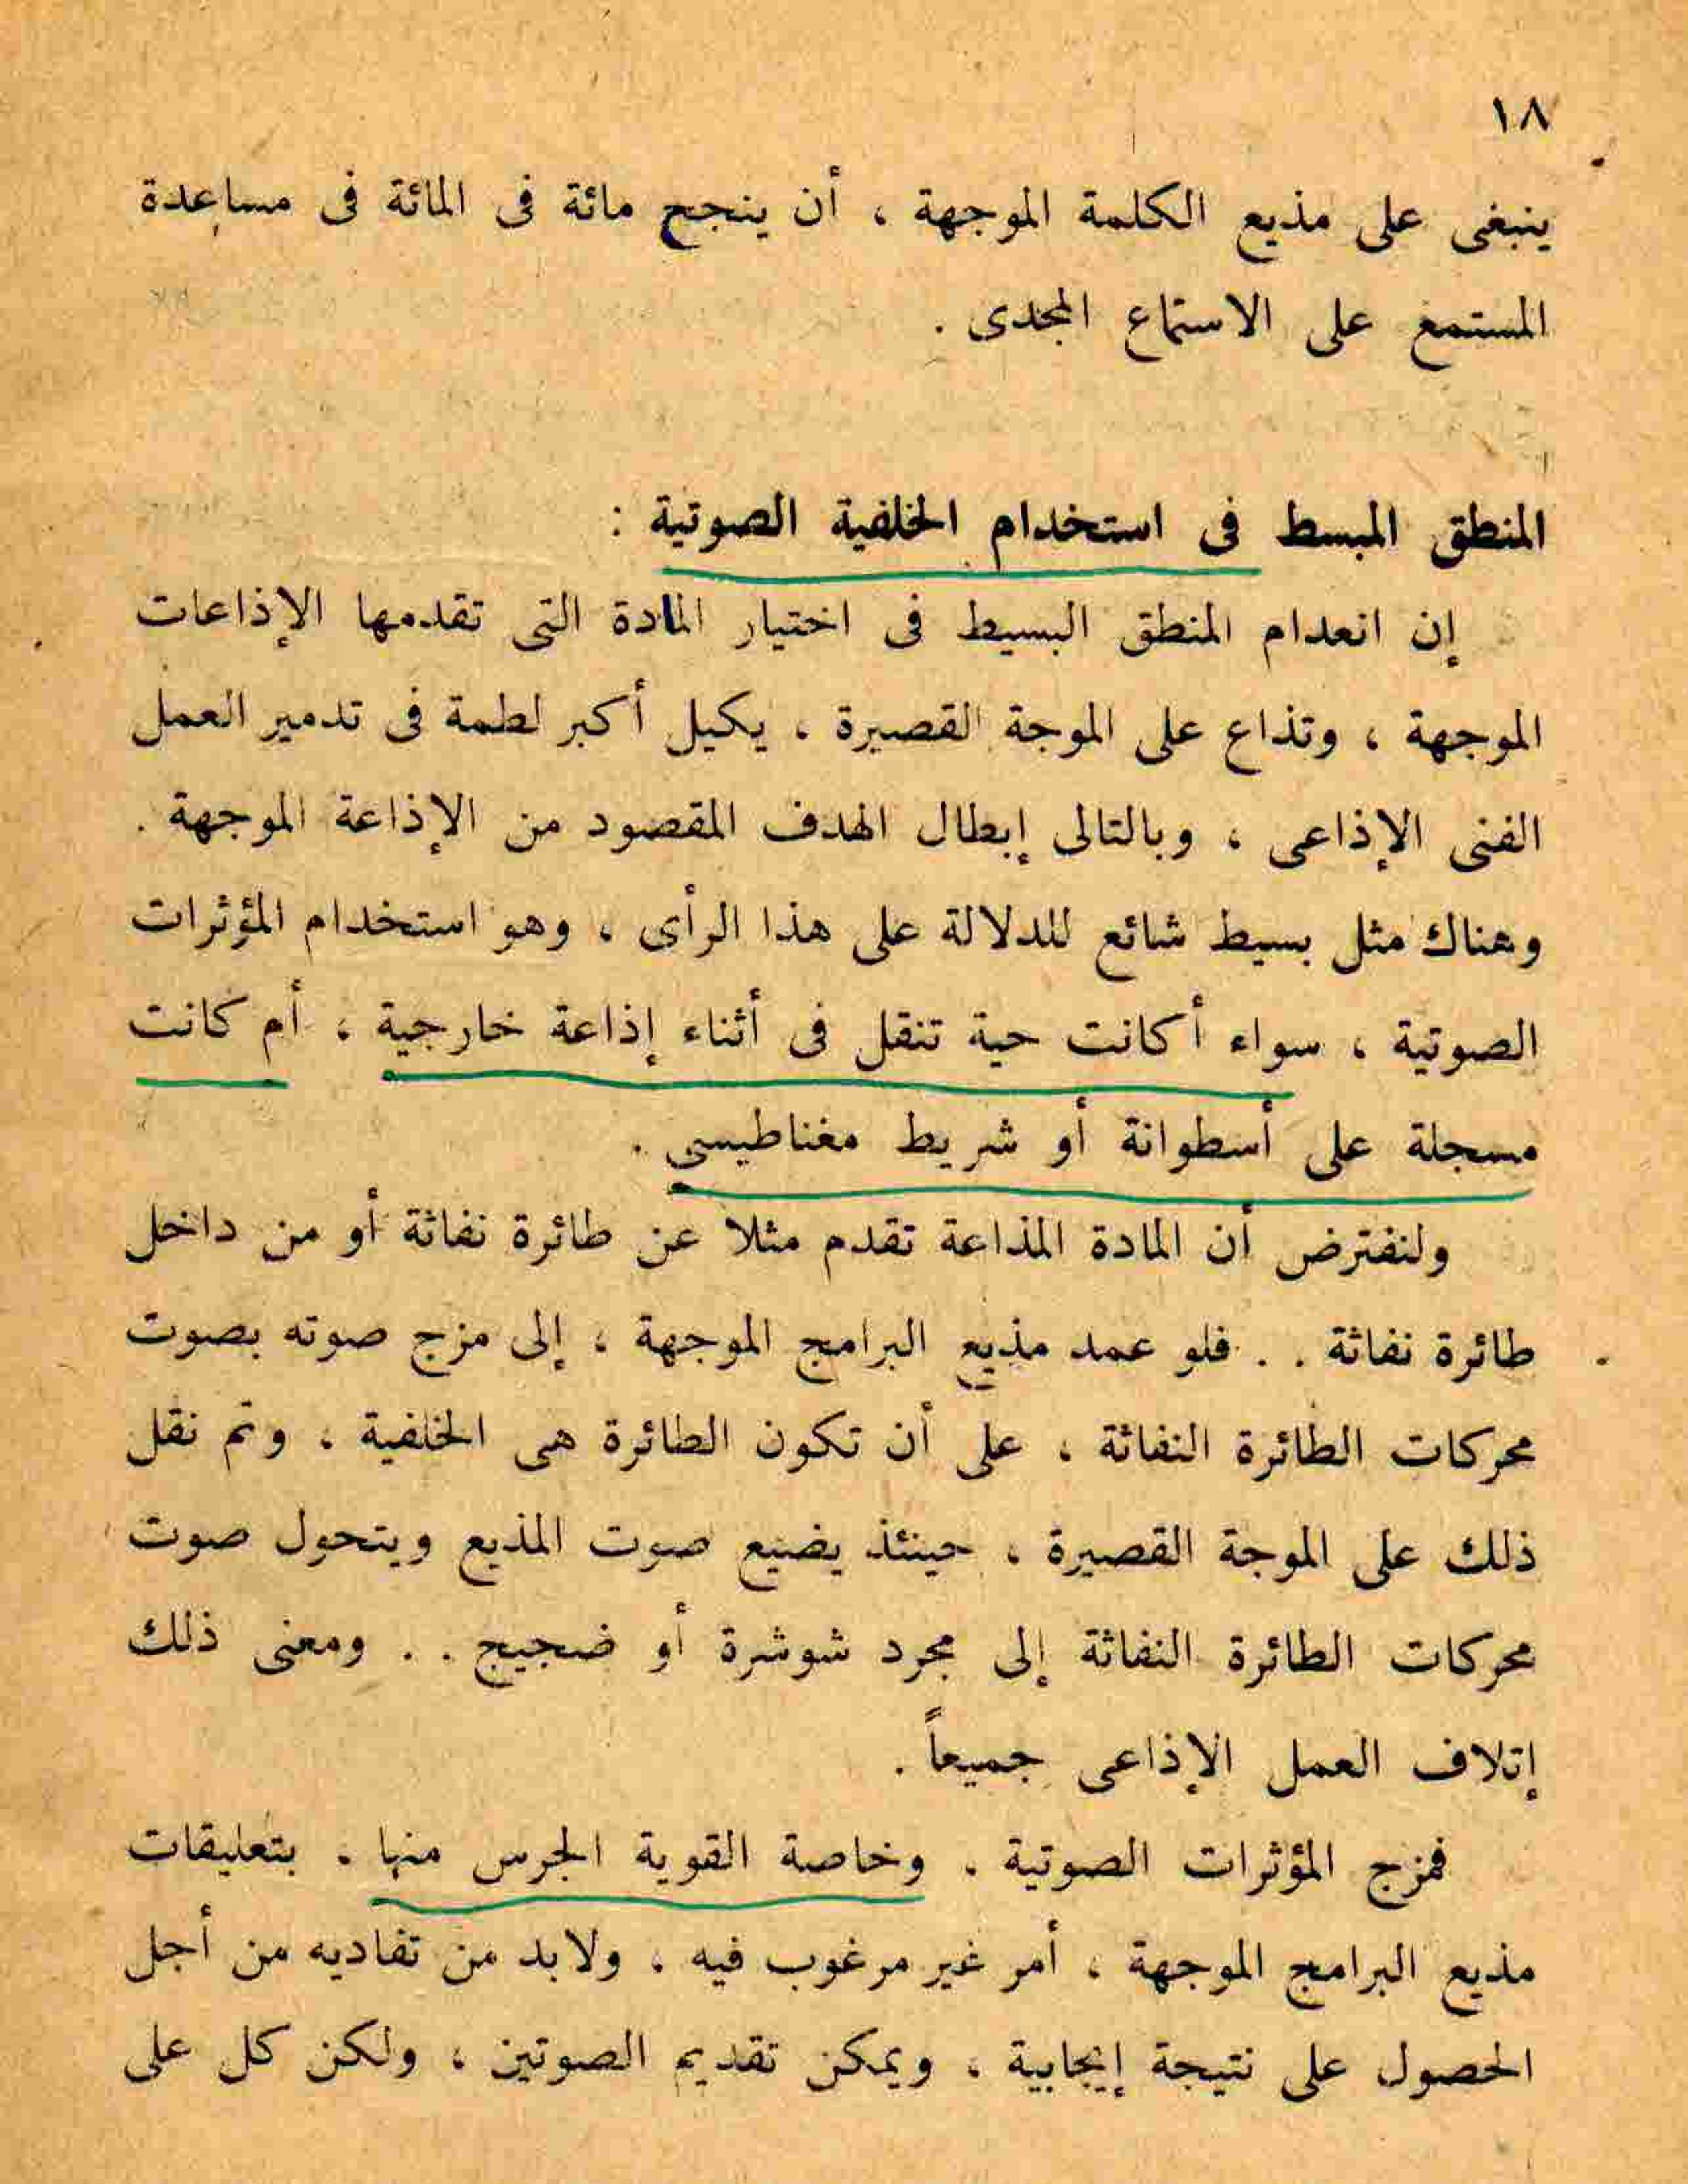 ١٨
ينبغى على مذيع الكلمة الموجهة ، أن ينجح مائة فى المائة فى مساعدة
المستمع على الاستماع المجدى .
المنطق المبسط فى استخدام الخلفية الصوتية :
إن انعدام المنطق البسيط فى اختيار المادة التى تقدمها الإذاعات
الموجهة ، وتذاع على الموجة القصيرة ، يكيل أكبر لطمة فى تدمير العمل
الفنى الإذاعى ، وبالتالى إبطال الهدف المقصود من الإذاعة الموجهة .
وهناك مثل بسيط شائع للدلالة على هذا الرأى ، وهو استخدام المؤثرات
الصوتية ، سواء أكانت حية تنقل فى أثناء إذاعة خارجية ، أم كانت
مسجلة على أسطوانة أو شريط مغناطيسى .
ولنفترض أن المادة المذاعة تقدم مثلا عن طائرة نفاثة أو من داخل
طائرة نفاثة . . فلو عمد مذيع البرامج الموجهة ، إلى مزج صوته بصوت
محركات الطائرة النفاثة ، على أن تكون الطائرة هى الخلفية ، وتم نقل
ذلك على الموجة القصيرة ، حينئذ يضيع صوت المذيع ويتحول صوت
محركات الطائرة النفاثة إلى مجرد شوشرة أو ضجيج . . ومعنى ذلك
إتلاف العمل الإذاعى جميعاً .
فمزج المؤثرات الصوتية . وخاصة القوية الجرس منها . بتعليقات
مذيع البرامج الموجهة ، أمر غير مرغوب فيه ، ولابد من تفاديه من أجل
الحصول على نتيجة إيجابية ، ويمكن تقديم الصوتين ، ولكن كل على